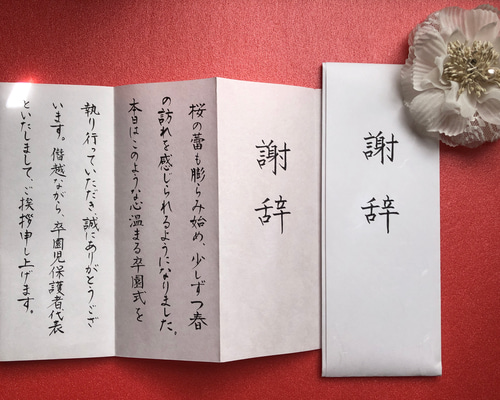 謝辞
謝辞
桜の蕾も膨らみ始め、少しずつ春
の訪れを感じられるようになりました。
本日はこのような心温まる卒園式を
執り行っていただき誠にありがとうござ
います。僭越ながら、卒園児保護者代表
といたしまして、ご挨拶申し上げます。